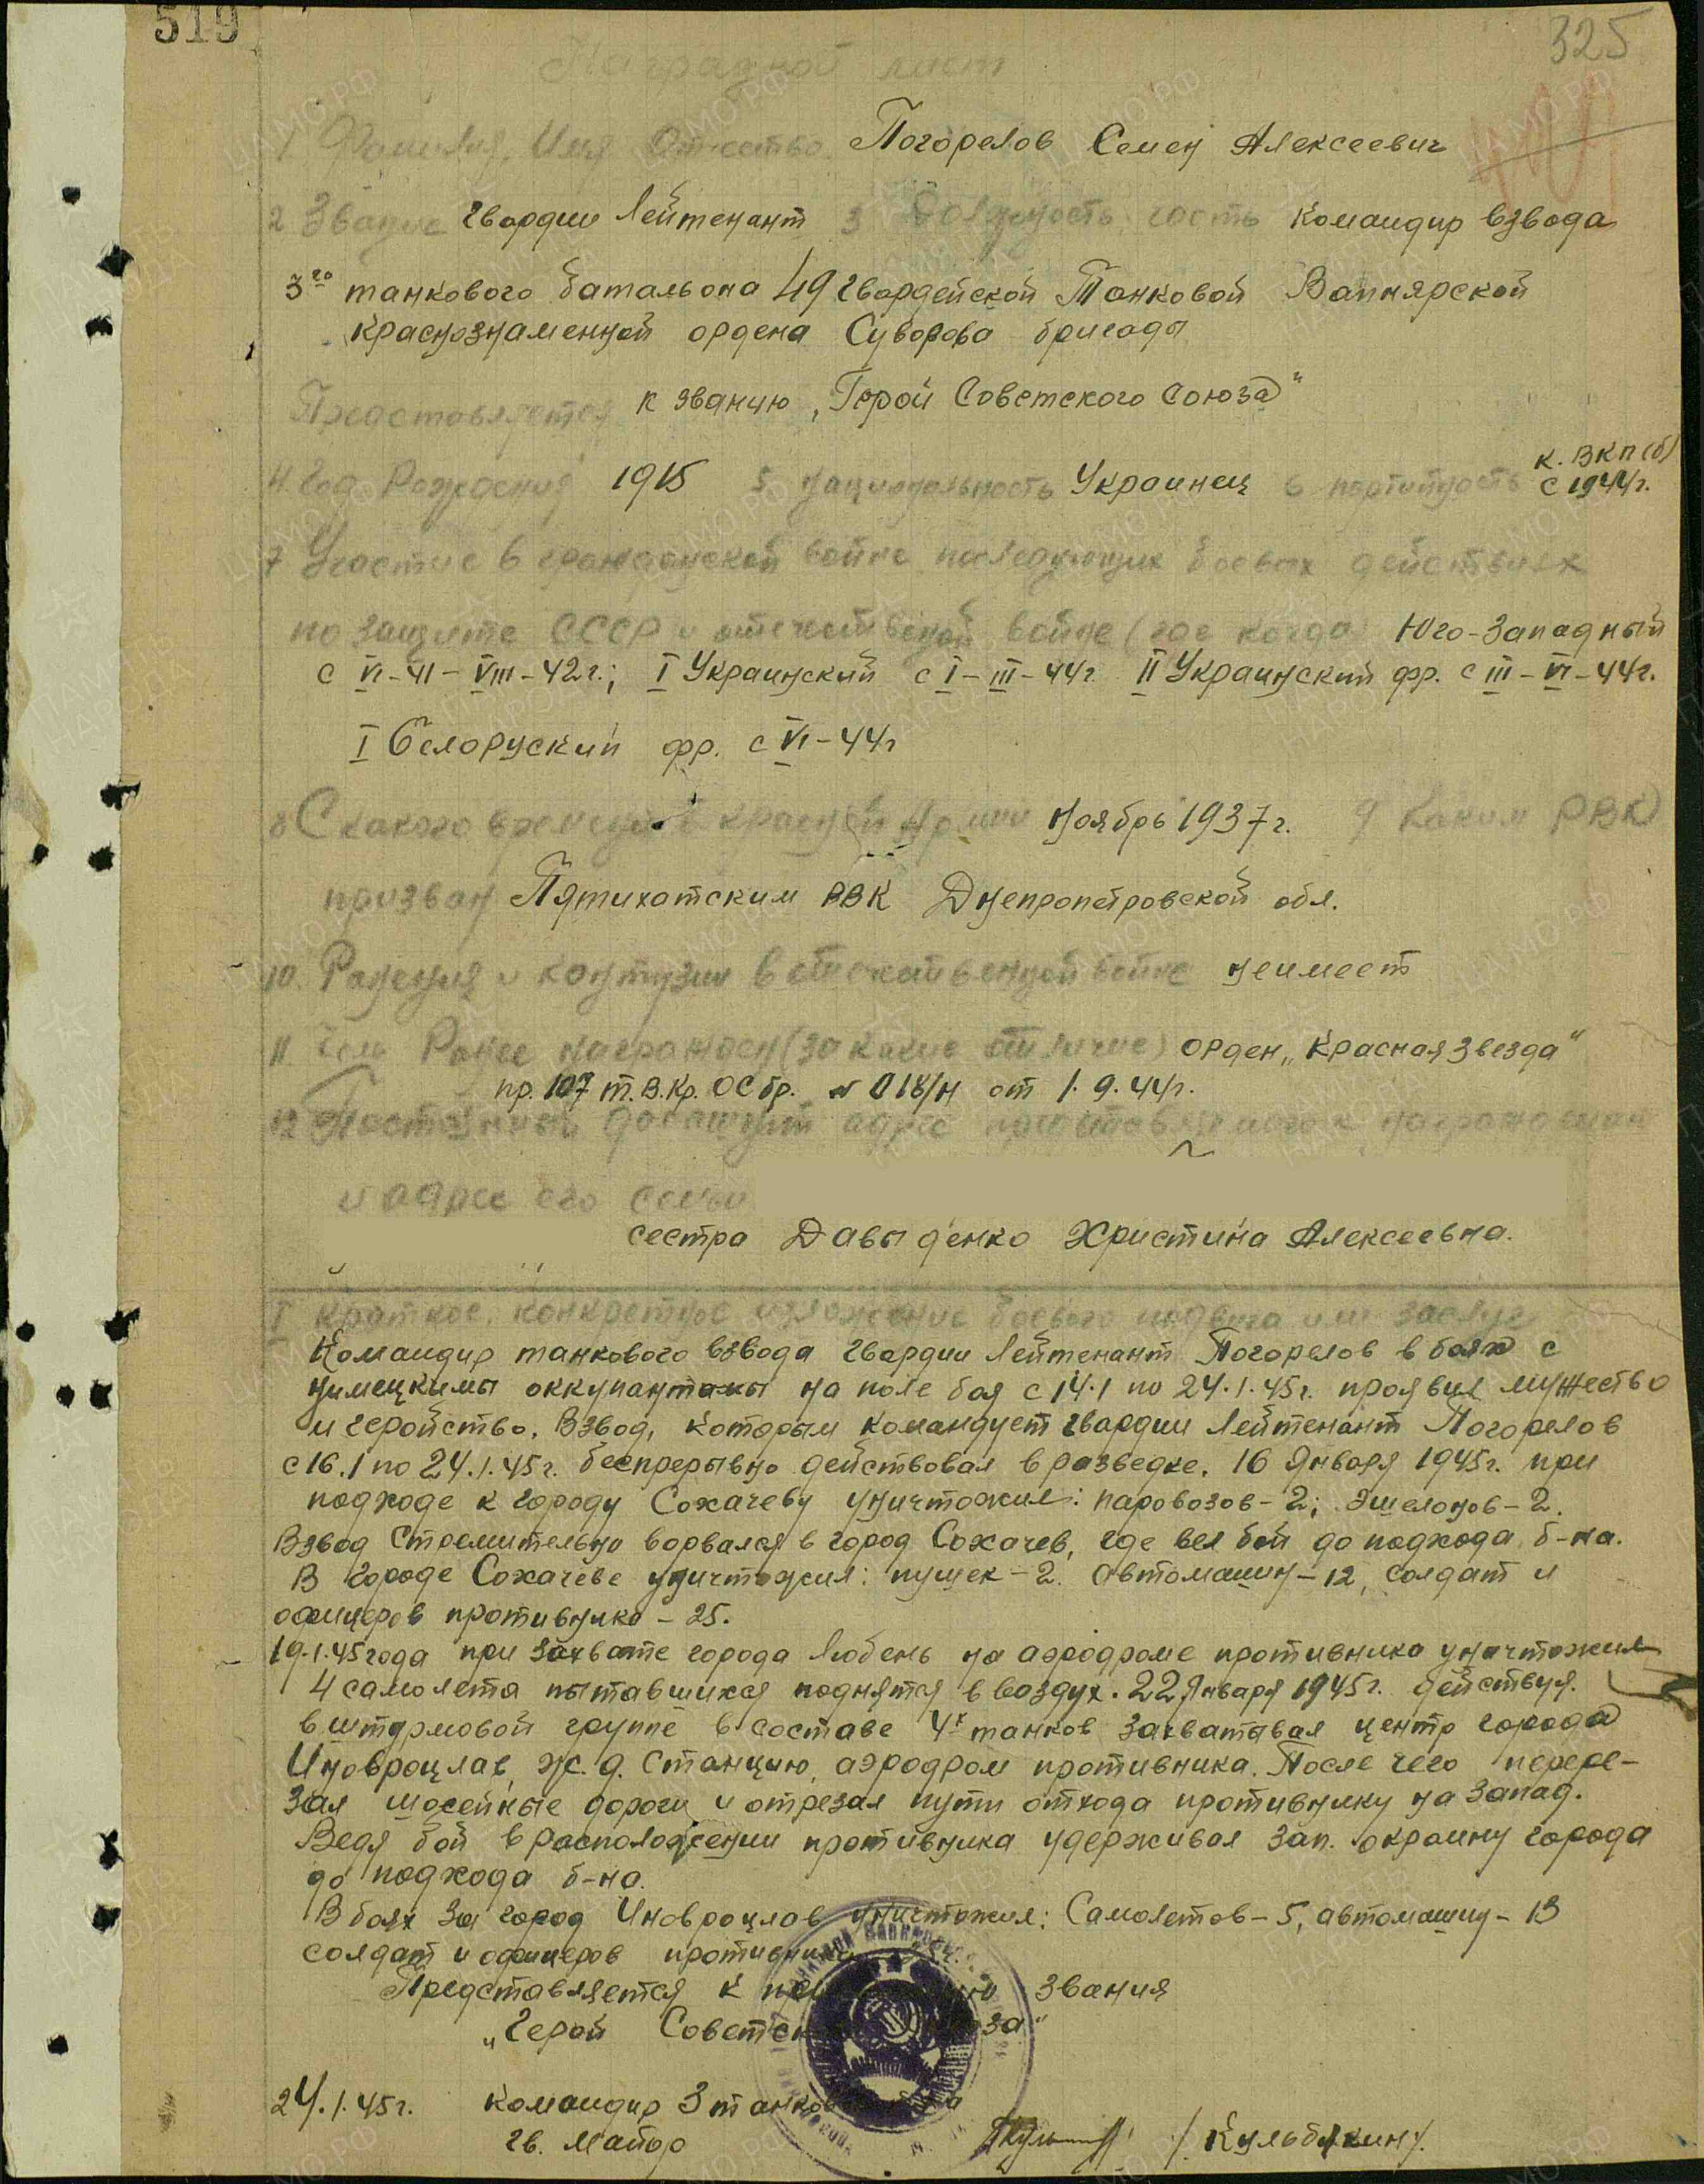 519
325
Наградной лист
1 Фамилия, Имя Отчество Погорелов Семен Алексеевич
2 Звание гвардии Лейтенант 3 Должность, часть командир взвода
3го танкового батальона 49 гвардейской Танковой Вапнярской
краснознаменной ордена Суворова бригады
Представляется к званию „Герой Советского Союза"
4. Год Рождения 1915 5 национальность Украинец 6 партийность К. ВКП(б)
с 1944г.
7 Участие в гражданской войне последующих боевых действиях
по защите СССР и отечественной войне (где когда) Юго-Западный
с VI-41-VIII-42г.; I Украинский с I-III-44г II Украинский фр. с III-VI-44г.
I Белоруский фр. с VI-44г
8 С какого времени в красной армии Ноябрь 1937г. 9 Каким РВК
призван Пятихатским РВК Днепропетровской обл.
10. Ранения и контузии в отечественной войне неимеет
11. Чем Ранее награжден (за какие отличие) орден „Красная Звезда"
пр. 107 т.В.Кр.ОС бр. N 018/н от 1.9.44г.
12 Постоянный домашний адрес представляемого к награждению
и адрес его семьи
сестра Давыденко Христина Алексеевна.
I Краткое, конкретное изложение боевого подвига или заслуг
Командир танкового взвода гвардии Лейтенант Погорелов в боях с
нимецкимы оккупантамы на поле боя с 14.1 по 24.1.45г. проявил мужество
и геройство. Взвод, которым командует гвардии Лейтенант Погорелов
с 16.1 по 24.1.45г. беспрерывно действовал в разведке. 16 Января 1945г. при
подходе к городу Сохачеву уничтожил: паровозов-2; Эшелонов-2.
Взвод Стремительно ворвался в город Сохачев, где вел бой до подхода б-на.
В городе Сохачеве уничтожил: пушек-2. Автомашин-12, солдат и
офицеров противника - 25.
19.1.45года при захвате города Любень на аэродроме противника уничтожил
4 самолета пытавшихся поднятся в воздух. 22 Января 1945г. действуя
в штурмовой группе в составе 4х танков захватывал центр города
Иновроцлав, ж.д. Станцию, аэродром противника. После чего перере-
зал шосейные дороги и отрезал пути отхода противнику на Запад.
Ведя бой в расположении противника удерживал зап. окраину города
до подхода б-на.
В боях за город Иновроцлав уничтожил: Самолетов-5, автомашин-13
солдат и офицеров противника
Представляется к звания
„Герой Советского Союза"
24.1.45г. Командир 3 танкового б-на
гв. Майор /Кульбякин/.